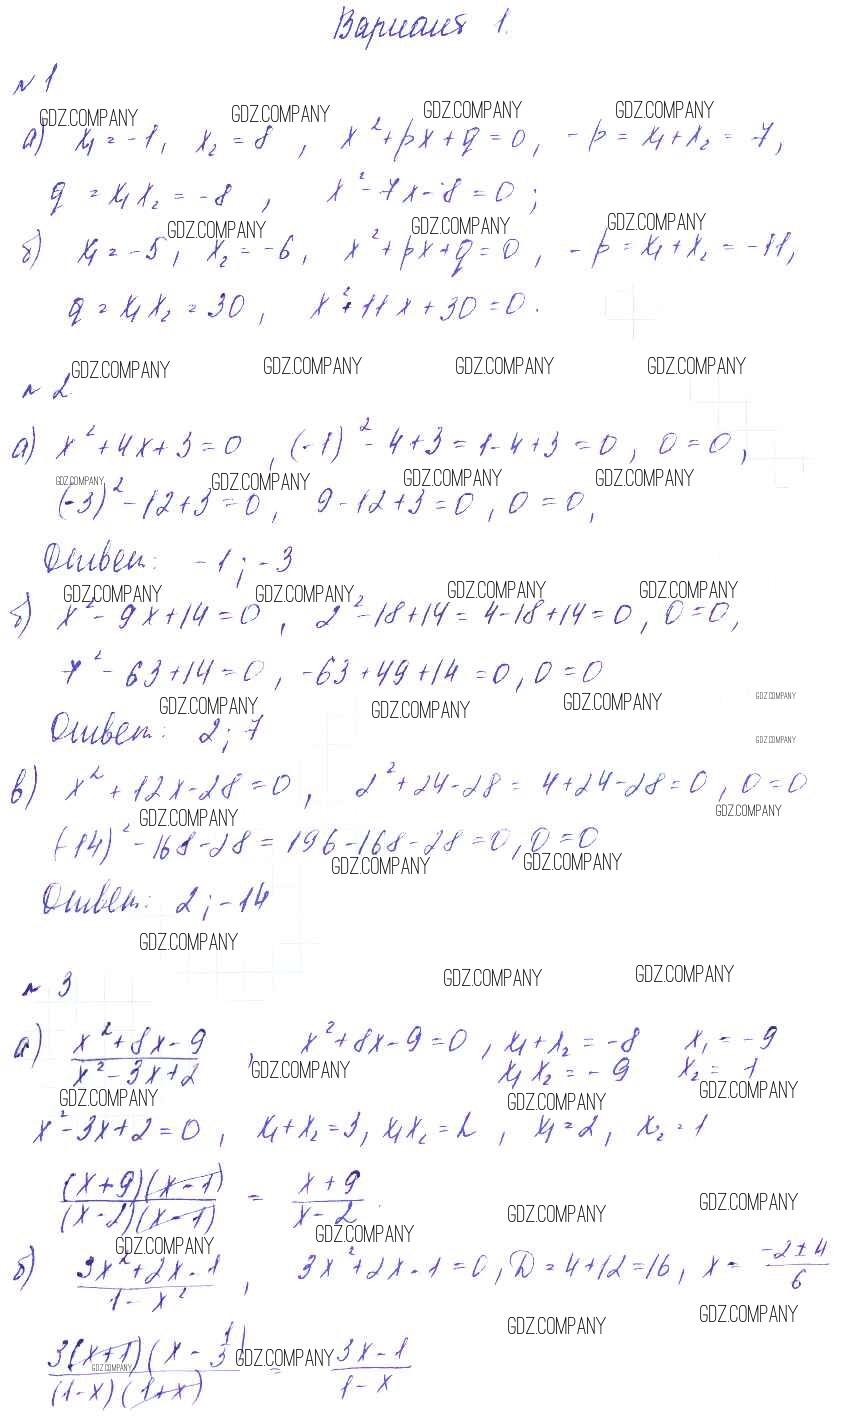 Вариант 1.
№ 1
GDZ.COMPANY GDZ.COMPANY GDZ.COMPANY GDZ.COMPANY
а) x₁ = -1, x₂ = 8, x² + px + q = 0, -p = x₁ + x₂ = 7,
q = x₁x₂ = -8, x² - 7x - 8 = 0;
GDZ.COMPANY GDZ.COMPANY GDZ.COMPANY
б) x₁ = -5, x₂ = -6, x² + px + q = 0, -p = x₁ + x₂ = -11,
q = x₁x₂ = 30, x² + 11x + 30 = 0.
GDZ.COMPANY GDZ.COMPANY GDZ.COMPANY GDZ.COMPANY
№ 2
а) x² + 4x + 3 = 0, (-1)² - 4 + 3 = 1 - 4 + 3 = 0, 0 = 0,
GDZ.COMPANY GDZ.COMPANY GDZ.COMPANY GDZ.COMPANY
(-3)² - 12 + 3 = 0, 9 - 12 + 3 = 0, 0 = 0,
Ответ: -1; -3
GDZ.COMPANY GDZ.COMPANY GDZ.COMPANY GDZ.COMPANY
б) x² - 9x + 14 = 0, 2² - 18 + 14 = 4 - 18 + 14 = 0, 0 = 0,
7² - 63 + 14 = 0, -63 + 49 + 14 = 0, 0 = 0
GDZ.COMPANY GDZ.COMPANY GDZ.COMPANY GDZ.COMPANY
Ответ: 2; 7
GDZ.COMPANY
в) x² + 12x - 28 = 0, 2² + 24 - 28 = 4 + 24 - 28 = 0, 0 = 0
GDZ.COMPANY GDZ.COMPANY
(-14)² - 168 - 28 = 196 - 168 - 28 = 0, 0 = 0
GDZ.COMPANY GDZ.COMPANY
Ответ: 2; -14
GDZ.COMPANY
№ 3
GDZ.COMPANY GDZ.COMPANY
а) (x² + 8x - 9)/(x² - 3x + 2), x² + 8x - 9 = 0, x₁ + x₂ = -8 x₁ = -9
x₁x₂ = -9 x₂ = 1
GDZ.COMPANY GDZ.COMPANY GDZ.COMPANY GDZ.COMPANY
x² - 3x + 2 = 0, x₁ + x₂ = 3, x₁x₂ = 2, x₁ = 2, x₂ = 1
((x + 9)(x - 1))/((x - 2)(x - 1)) = (x + 9)/(x - 2).
GDZ.COMPANY GDZ.COMPANY GDZ.COMPANY GDZ.COMPANY
б) (3x² + 2x - 1)/(1 - x²), 3x² + 2x - 1 = 0, D = 4 + 12 = 16, x = (-2 ± 4)/6
GDZ.COMPANY GDZ.COMPANY
(3(x + 1)(x - 1/3))/((1 - x)(1 + x)) = (3x - 1)/(1 - x)
GDZ.COMPANY GDZ.COMPANY